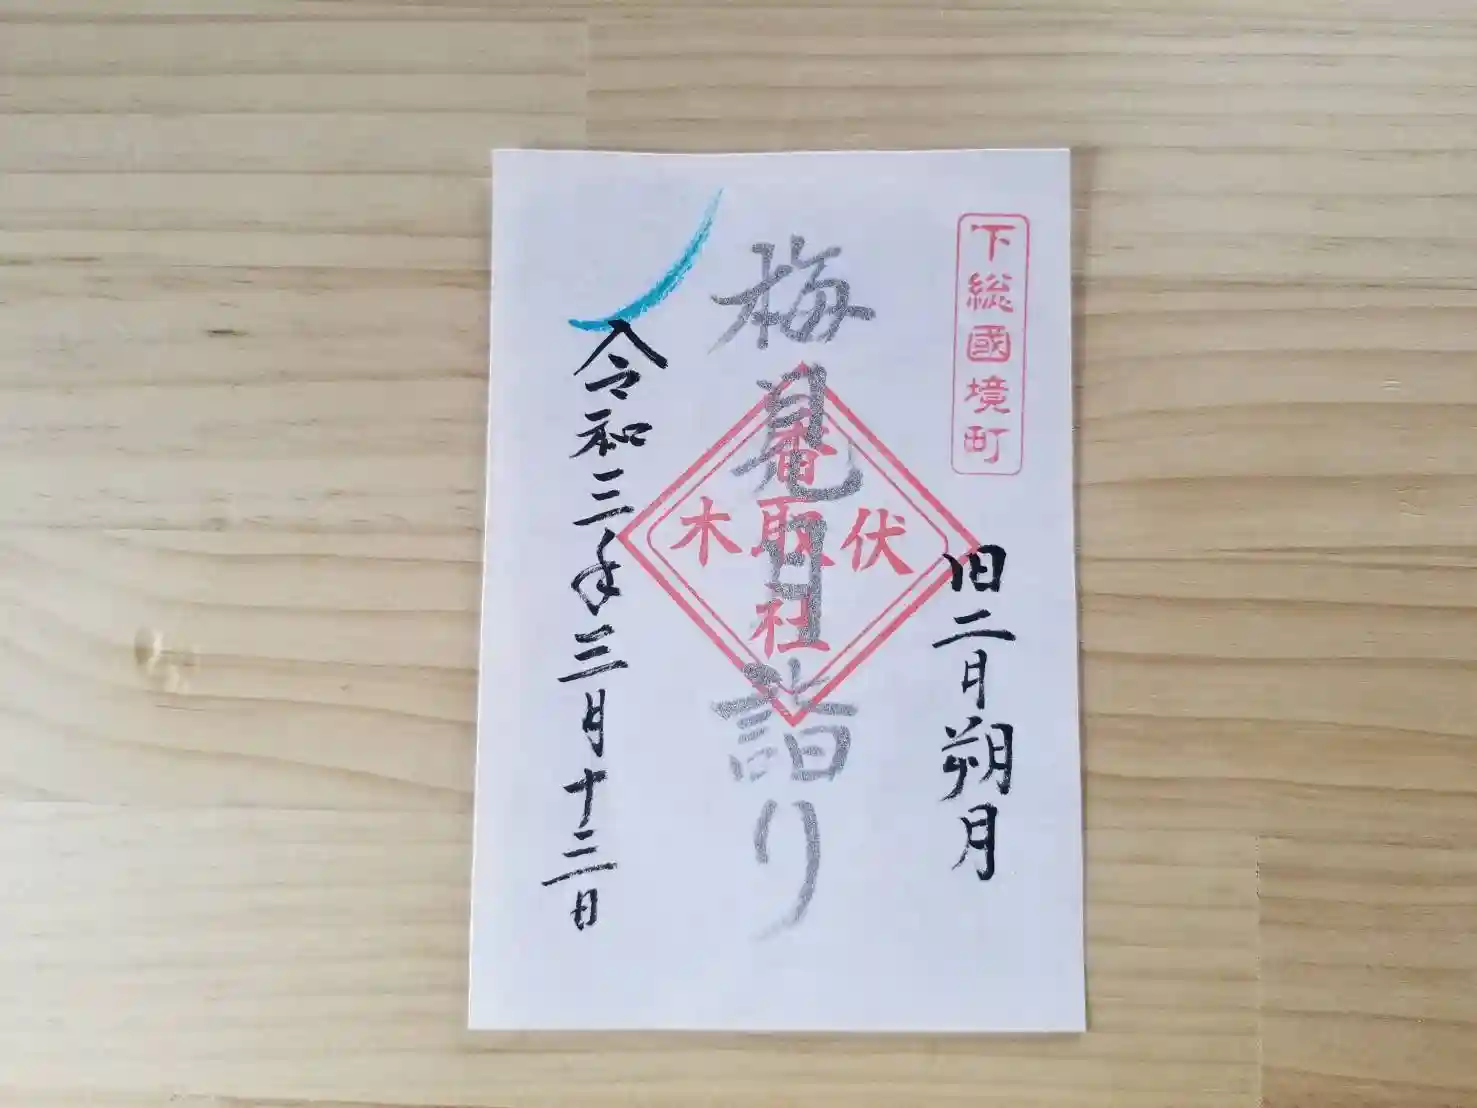 下総國境町
旧二月朔月
梅見月詣り
伏木
香取社
令和三年三月十三日